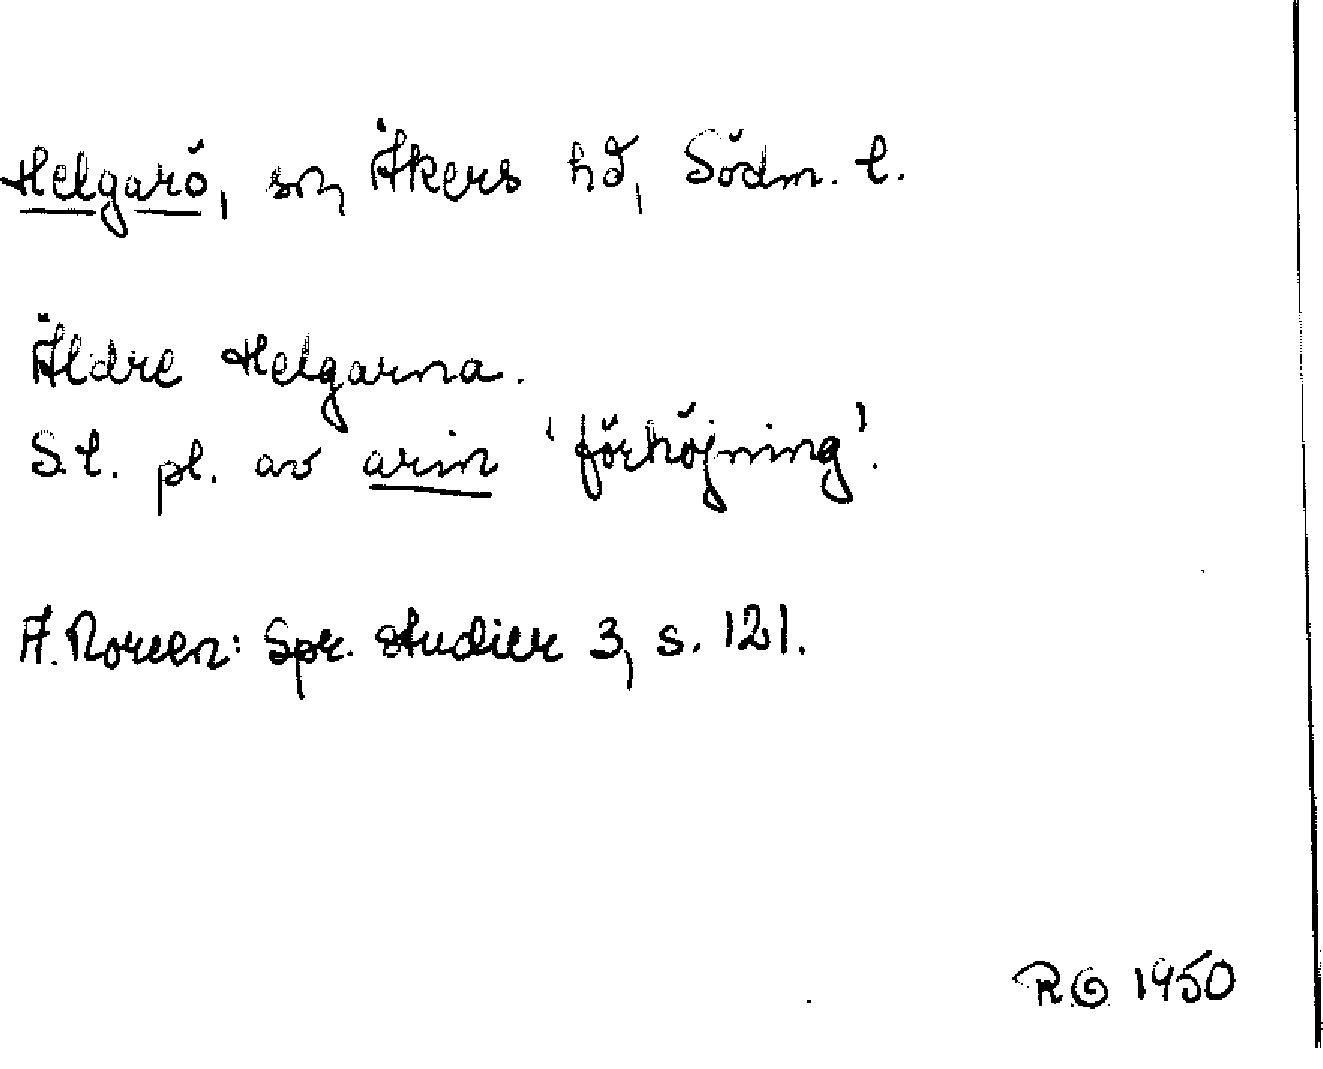 Helgarö, sn, Åkers hd, Södm. l.
Äldre Helgarna.
S.l. pl. av arin 'förhöjning'.
A. Noreen: Spr. studier 3, s. 121.
RG 1950